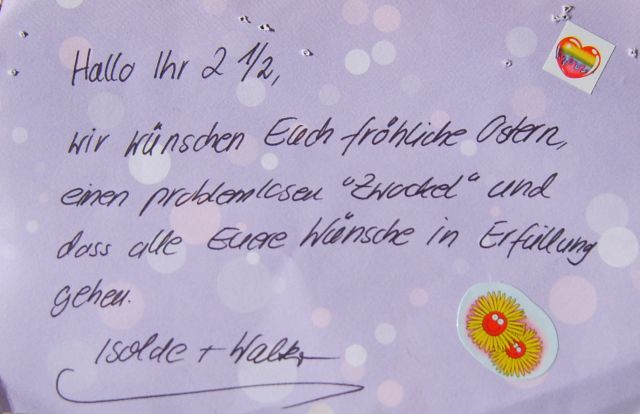 Hallo Ihr 2 1/2,
wir wünschen Euch fröhliche Ostern,
einen problemlosen "Zwockel" und
dass alle Euere Wünsche in Erfüllung
gehen.
Isolde + Walter